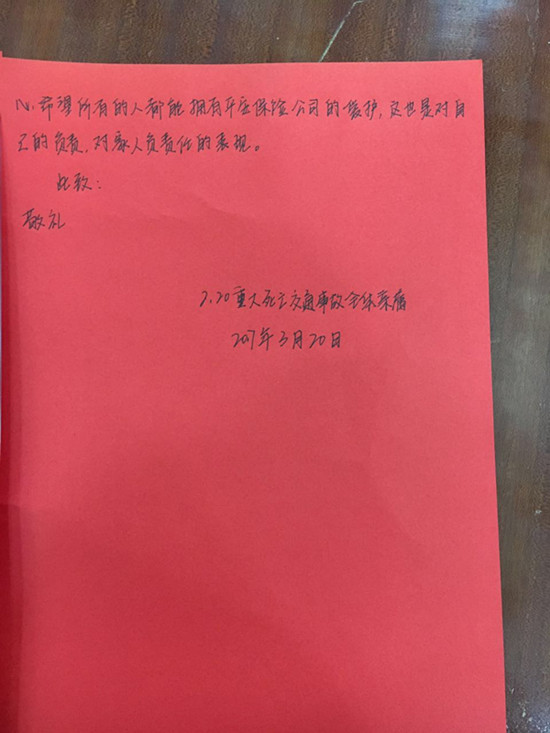 心。希望所有的人都能拥有平安保险公司的保护,这也是对自
己的负责,对家人负责任的表现。
此致:
敬礼
2.20重大死亡交通事故全体家属
2017年3月20日